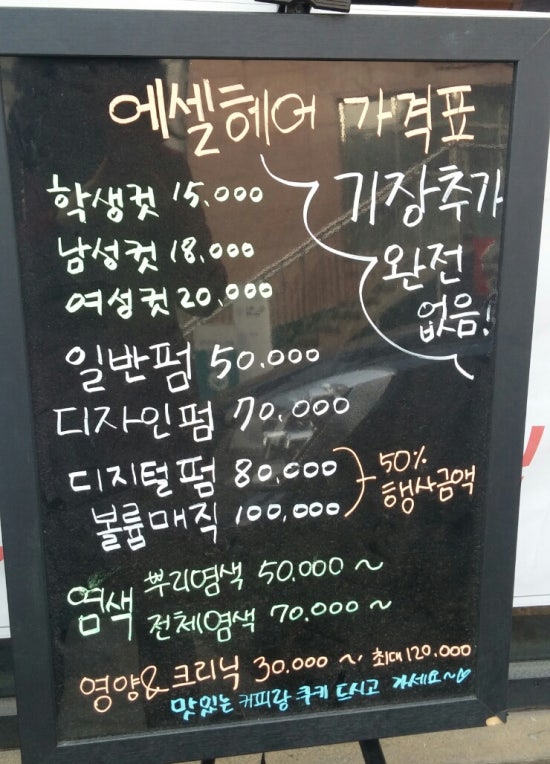 에셀헤어 가격표
기장추가
완전
없음!
학생컷 15,000
남성컷 18,000
여성컷 20,000
일반펌 50,000
디자인펌 70,000
디지털펌 80,000
볼륨매직 100,000
50%
행사금액
염색
뿌리염색 50,000 ~
전체염색 70,000 ~
영양& 크리닉 30,000 ~ 최대 120,000
맛있는 커피랑 쿠키 드시고 가세요~♡